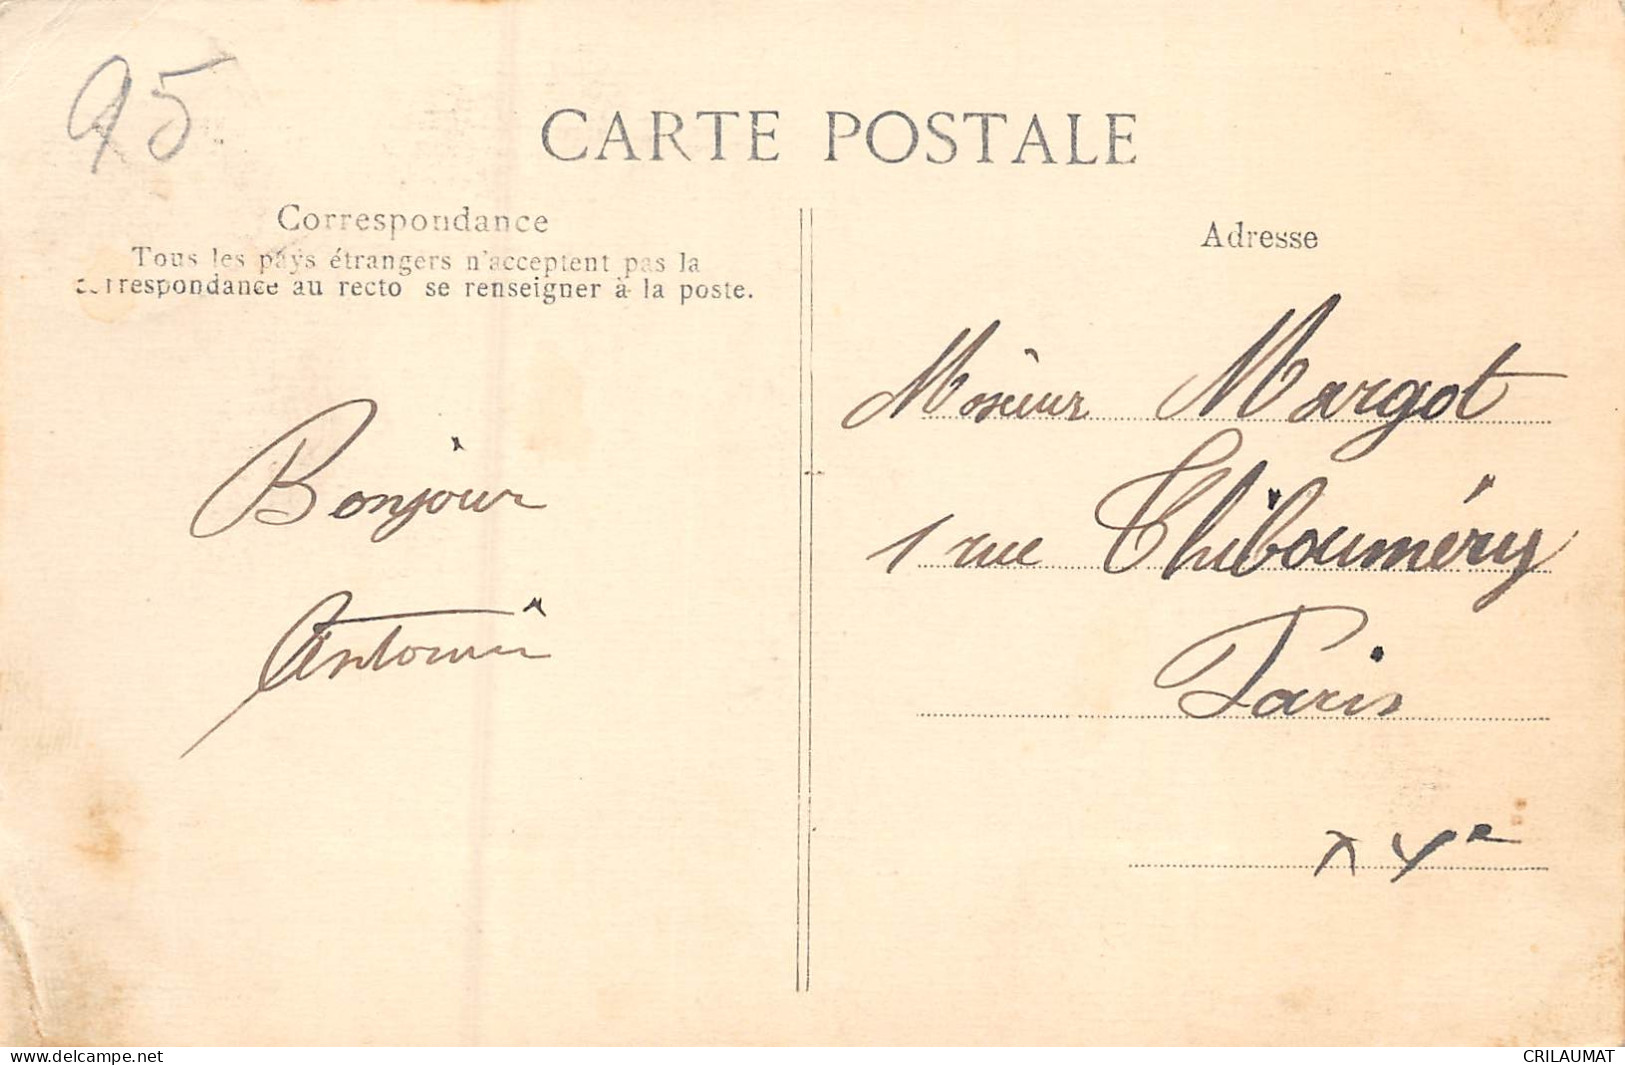 95
CARTE POSTALE
Correspondance
Tous les pays étrangers n'acceptent pas la
correspondance au recto se renseigner à la poste.
Bonjour
Antonin
Adresse
Mosieur Margot
1 rue Thibouméry
Paris
XVe
www.delcampe.net
CRILAUMAT